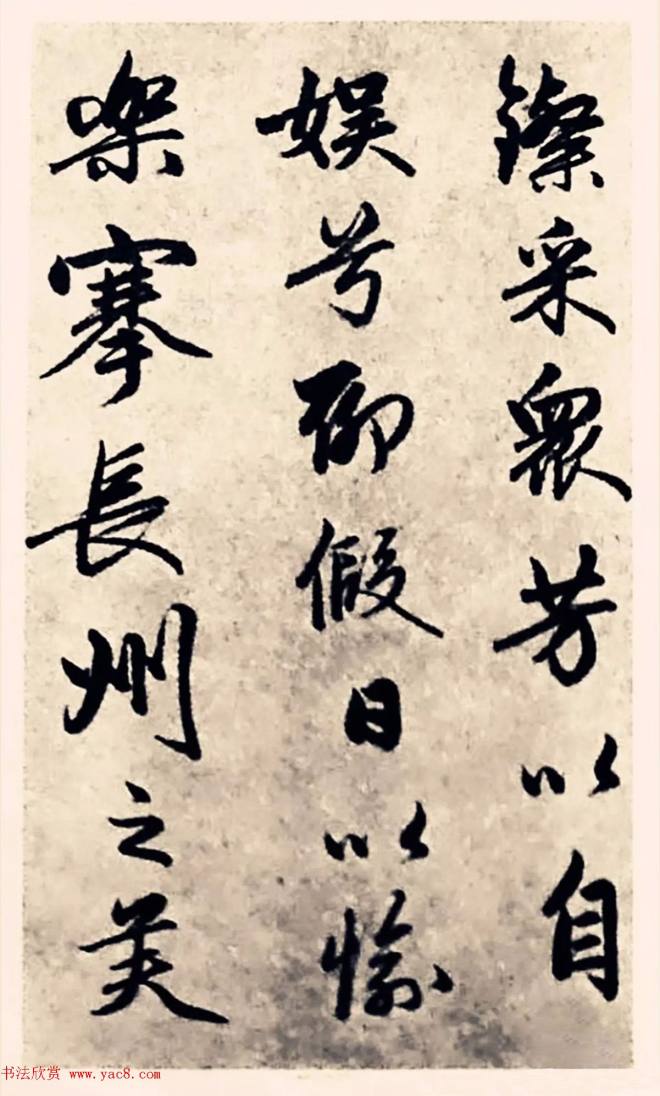 鑠采衆芳以自
娱兮聊假日以愉
樂搴長州之芙
书法欣赏 www.yac8.com